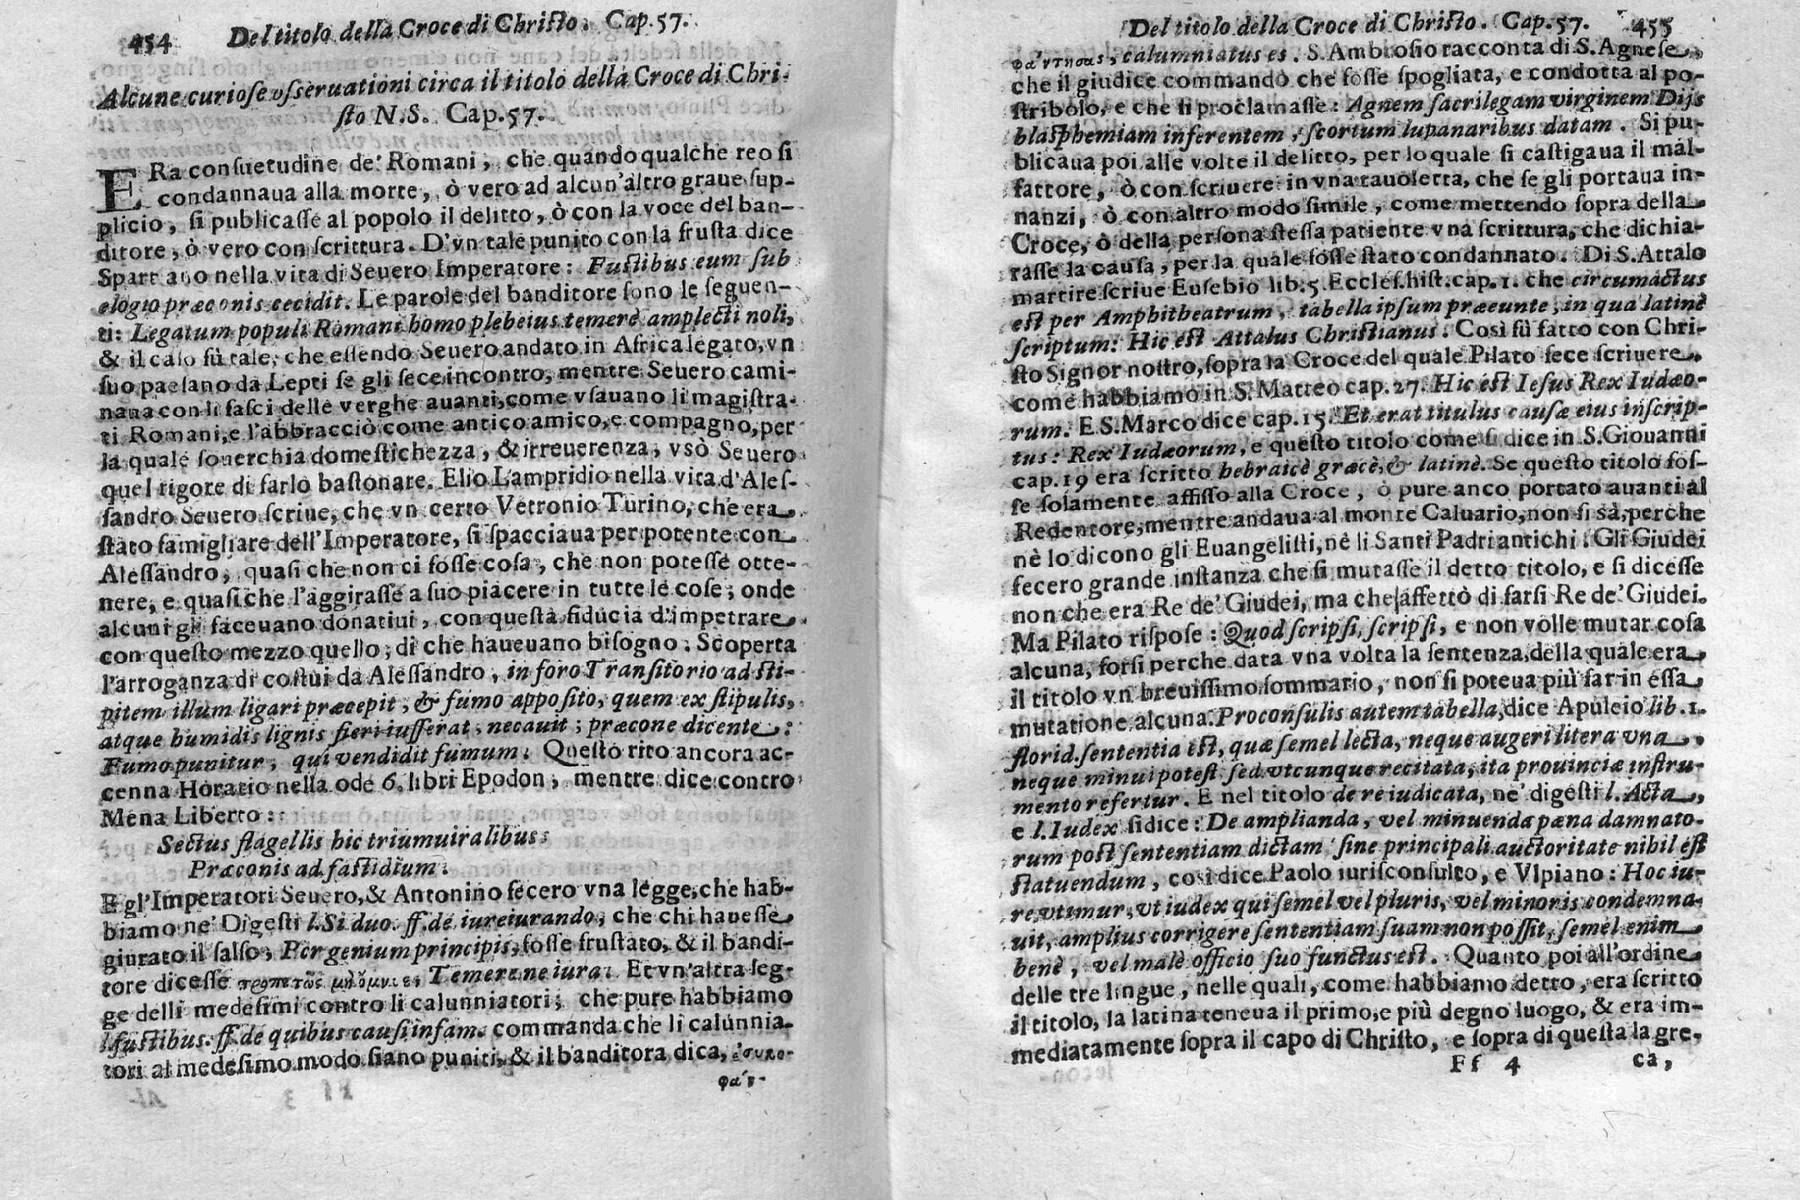 454 Del titolo della Croce di Chriſto. Cap.57.
Alcune curioſe oſſeruationi circa il titolo della Croce di Chri-
ſto N.S. Cap.57.
ERa conſuetudine de' Romani, che quando qualche reo ſi
condannaua alla morte, ò vero ad alcun'altro graue ſup-
plicio, ſi publicaſſe al popolo il delitto, ò con la voce del ban-
ditore, ò vero con ſcrittura. D'vn tale punito con la fruſta dice
Spartiano nella vita di Seuero Imperatore: Fuſtibus eum ſub
elogio præconis cecidit. Le parole del banditore ſono le ſeguen-
ti: Legatum populi Romani homo plebeius temerè amplecti noli,
& il caſo fù tale, che eſſendo Seuero andato in Africa legato, vn
ſuo paeſano da Lepti ſe gli fece incontro, mentre Seuero cami-
naua con li faſci delle verghe auanti, come vſauano li magiſtra-
ti Romani, e l'abbracciò come antico amico, e compagno, per
la quale ſouerchia domeſtichezza, & irreuerenza, vsò Seuero
quel rigore di farlo baſtonare. Elio Lampridio nella vita d'Aleſ-
ſandro Seuero ſcriue, che vn certo Vetronio Turino, che era
ſtato famigliare dell'Imperatore, ſi ſpacciaua per potente con
Aleſſandro, quaſi che non ci foſſe coſa, che non poteſſe otte-
nere, e quaſi che l'aggiraſſe a ſuo piacere in tutte le coſe; onde
alcuni gli faceuano donatiui, con queſta fiducia d'impetrare
con queſto mezzo quello, di che haueuano biſogno. Scoperta
l'arroganza di coſtui da Aleſſandro, in foro Tranſitorio ad ſti-
pitem illum ligari præcepit, & fumo appoſito, quem ex ſtipulis,
atque humidis lignis fieri iuſſerat, necauit; præcone dicente:
Fumo punitur, qui vendidit fumum. Queſto rito ancora ac-
cenna Horatio nella ode 6. libri Epodon, mentre dice contro
Mena Liberto:
Sectus flagellis hic triumuiralibus
Præconis ad faſtidium.
E gl'Imperatori Seuero, & Antonino fecero vna legge, che hab-
biamo ne' Digeſti l. Si duo. ff. de iureiurando, che chi haueſſe
giurato il falſo, Per genium principis, foſſe fruſtato, & il bandi-
tore diceſſe προπετῶς μὴ ὄμνυε, Temere ne iura. Et vn'altra leg-
ge delli medeſimi contro li calunniatori, che pure habbiamo
l. fuſtibus. ff. de quibus cauſi infam. commanda che li calunnia-
tori al medeſimo modo ſiano puniti, & il banditora dica, ἐσυκο-
φάν-
Del titolo della Croce di Chriſto. Cap.57. 455
φάντησας, calumniatus es. S. Ambroſio racconta di S. Agneſe,
che il giudice commandò che foſſe ſpogliata, e condotta al po-
ſtribolo, e che ſi proclamaſſe: Agnem ſacrilegam virginem Dijs
blaſphemiam inferentem, ſcortum lupanaribus datam. Si pu-
blicaua poi alle volte il delitto, per lo quale ſi caſtigaua il mal-
fattore, ò con ſcriuere in vna tauoletta, che ſe gli portaua in-
nanzi, ò con altro modo ſimile, come mettendo ſopra della
Croce, ò della perſona ſteſſa patiente vna ſcrittura, che dichia-
raſſe la cauſa, per la quale foſſe ſtato condannato. Di S. Attalo
martire ſcriue Euſebio lib.5. Eccleſ.hiſt.cap.1. che circumactus
eſt per Amphitheatrum, tabella ipſum præeunte, in qua latinè
ſcriptum: Hic eſt Attalus Chriſtianus. Così fù fatto con Chri-
ſto Signor noſtro, ſopra la Croce del quale Pilato fece ſcriuere
come habbiamo in S. Matteo cap.27. Hic eſt Ieſus Rex Iudæo-
rum. E S. Marco dice cap.15. Et erat titulus cauſæ eius inſcrip-
tus: Rex Iudæorum, e queſto titolo come ſi dice in S. Giouanni
cap.19 era ſcritto hebraicè græcè, & latinè. Se queſto titolo foſ-
ſe ſolamente affiſſo alla Croce, ò pure anco portato auanti al
Redentore, mentre andaua al monte Caluario, non ſi sà, perche
nè lo dicono gli Euangeliſti, nè li Santi Padri antichi. Gli Giudei
fecero grande inſtanza che ſi mutaſſe il detto titolo, e ſi diceſſe
non che era Re de' Giudei, ma che affettò di farſi Re de' Giudei.
Ma Pilato riſpoſe: Quod ſcripſi, ſcripſi, e non volle mutar coſa
alcuna, forſi perche data vna volta la ſentenza, della quale era
il titolo vn breuiſſimo ſommario, non ſi poteua più far in eſſa
mutatione alcuna. Proconſulis autem tabella, dice Apuleio lib.1.
florid. ſententia eſt, quæ ſemel lecta, neque augeri litera vna,
neque minui poteſt, ſed vtcunque recitata, ita prouinciæ inſtru-
mento refertur. E nel titolo de re iudicata, ne' digeſti l. Acta,
e l. Iudex ſi dice: De amplianda, vel minuenda pæna damnato-
rum poſt ſententiam dictam ſine principali auctoritate nihil eſt
ſtatuendum, così dice Paolo iuriſconſulto, e Vlpiano: Hoc iu-
re vtimur, vt iudex qui ſemel vel pluris, vel minoris condemna-
uit, amplius corrigere ſententiam ſuam non poſſit, ſemel enim
benè, vel malè officio ſuo functus eſt. Quanto poi all'ordine
delle tre lingue, nelle quali, come habbiamo detto, era ſcritto
il titolo, la latina teneua il primo, e più degno luogo, & era im-
mediatamente ſopra il capo di Chriſto, e ſopra di queſta la gre-
Ff 4 ca,